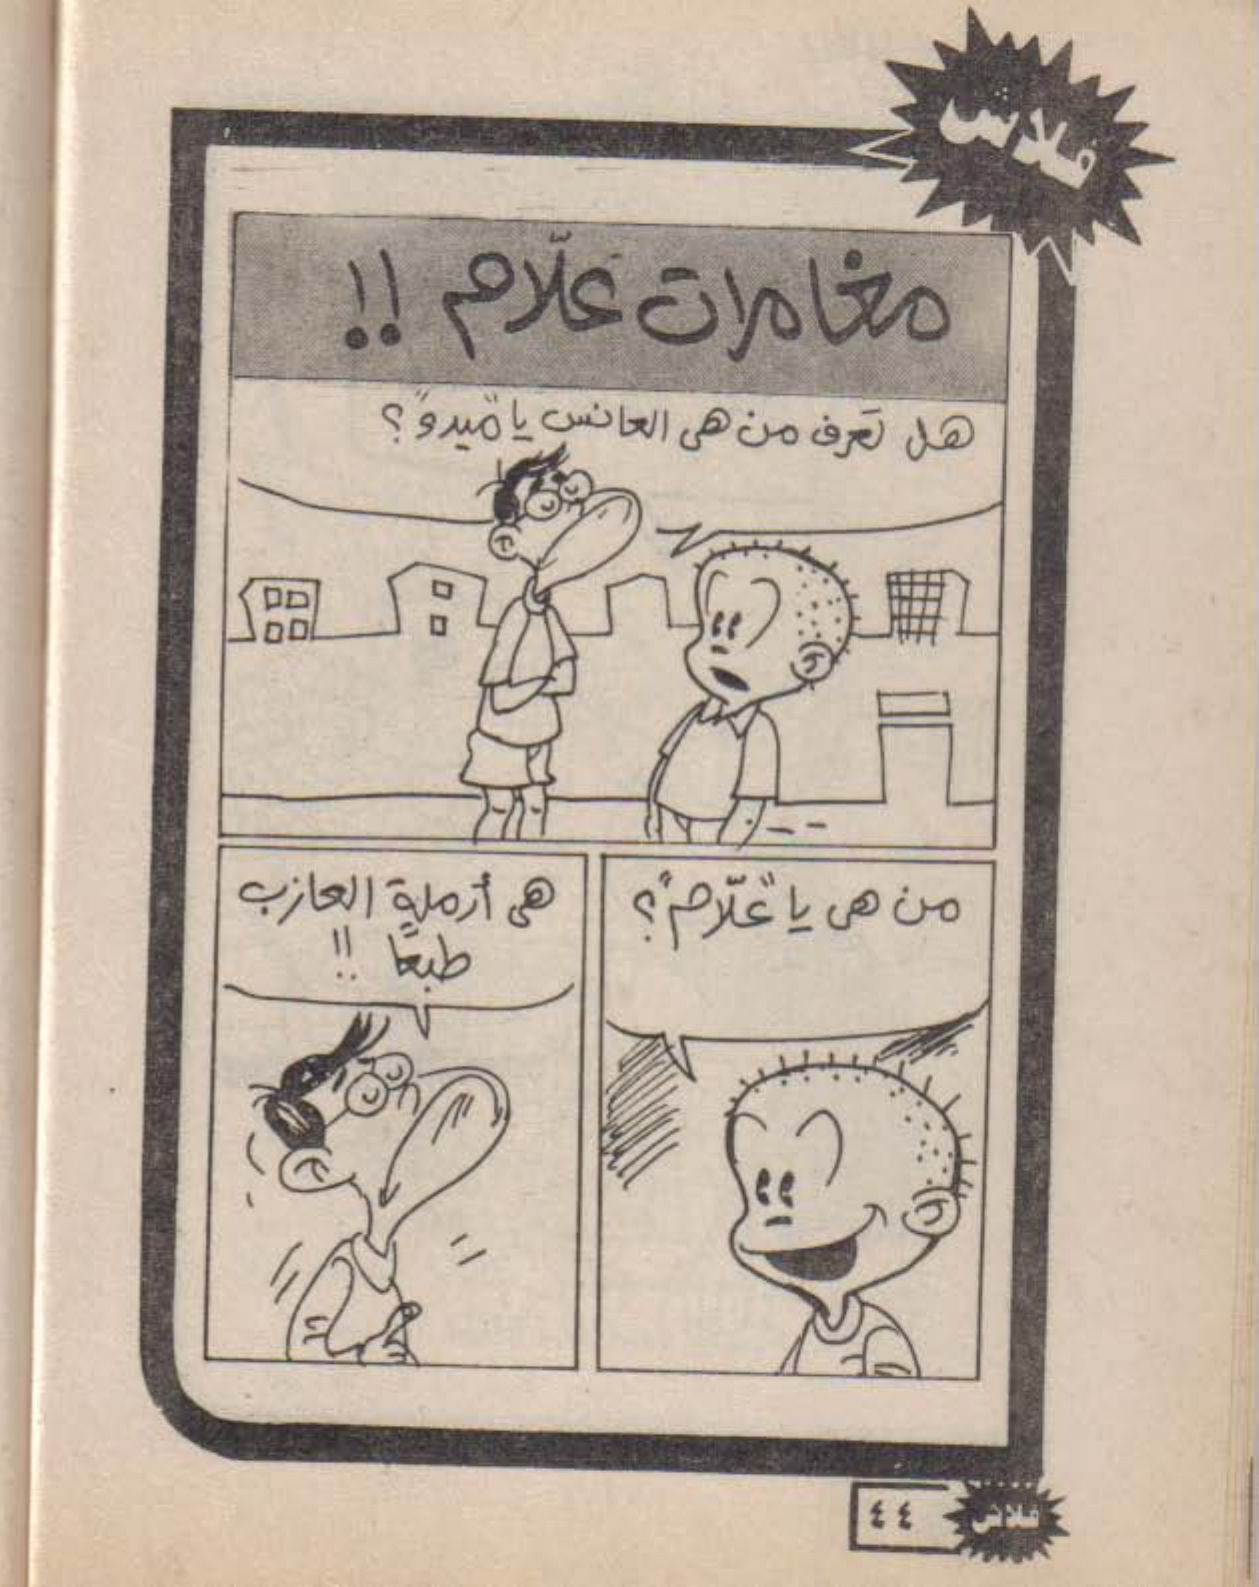 فلاش
مغامرات علّام !!
هل تعرف من هى العانس يا "ميدو"؟
من هى يا "علّام"؟
هى أرملة العازب
طبعًا !!
٤٤
فلاش